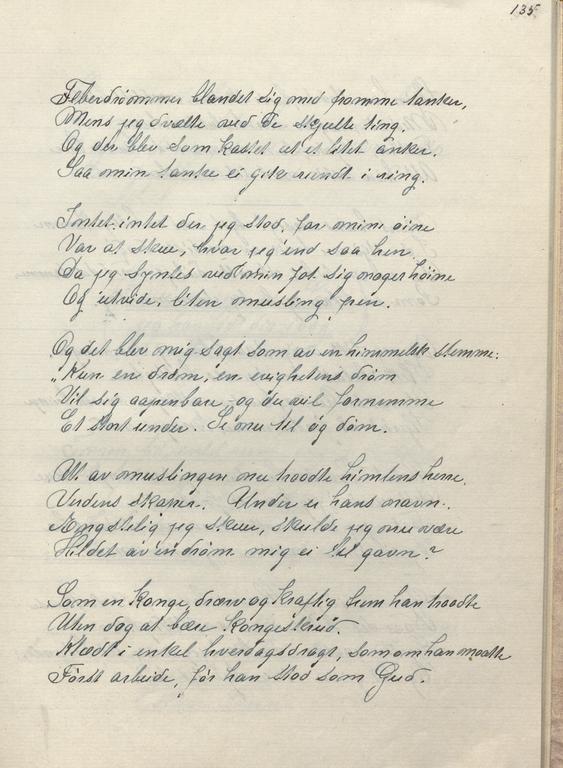 135
Feberdrömmer blandet sig med fromme tanker,
Mens jeg dvælte ved de skjulte ting.
Og der blev som kastet ut et litet anker.
Saa min tanke ei gik rundt i ring.
Intet, intet der jeg stod, for mine öine
Var at skue, hvor jeg end saa hen.
Da jeg syntes ved min fot sig noget höine
Og utvide, liten musling pen.
Og det blev mig sagt som av en himmelsk stemme:
"Kun en dröm, en evighetens dröm
Vil sig aapenbare, og du vil fornemme
Et stort under. Se nu til og döm.
Ut av muslingen nu traadte himlens herre
Verdens skaper. Under er hans navn.
Ængstelig jeg skuer, skulde jeg nu være
Hildet av en dröm mig ei til gavn?
Som en konge, dræv og kraftig frem han traadte
Uten dog at bære kongeskrud.
Klædt i enkel hverdagsdragt, som om han maatte
Först arbeide, för han stod som Gud.